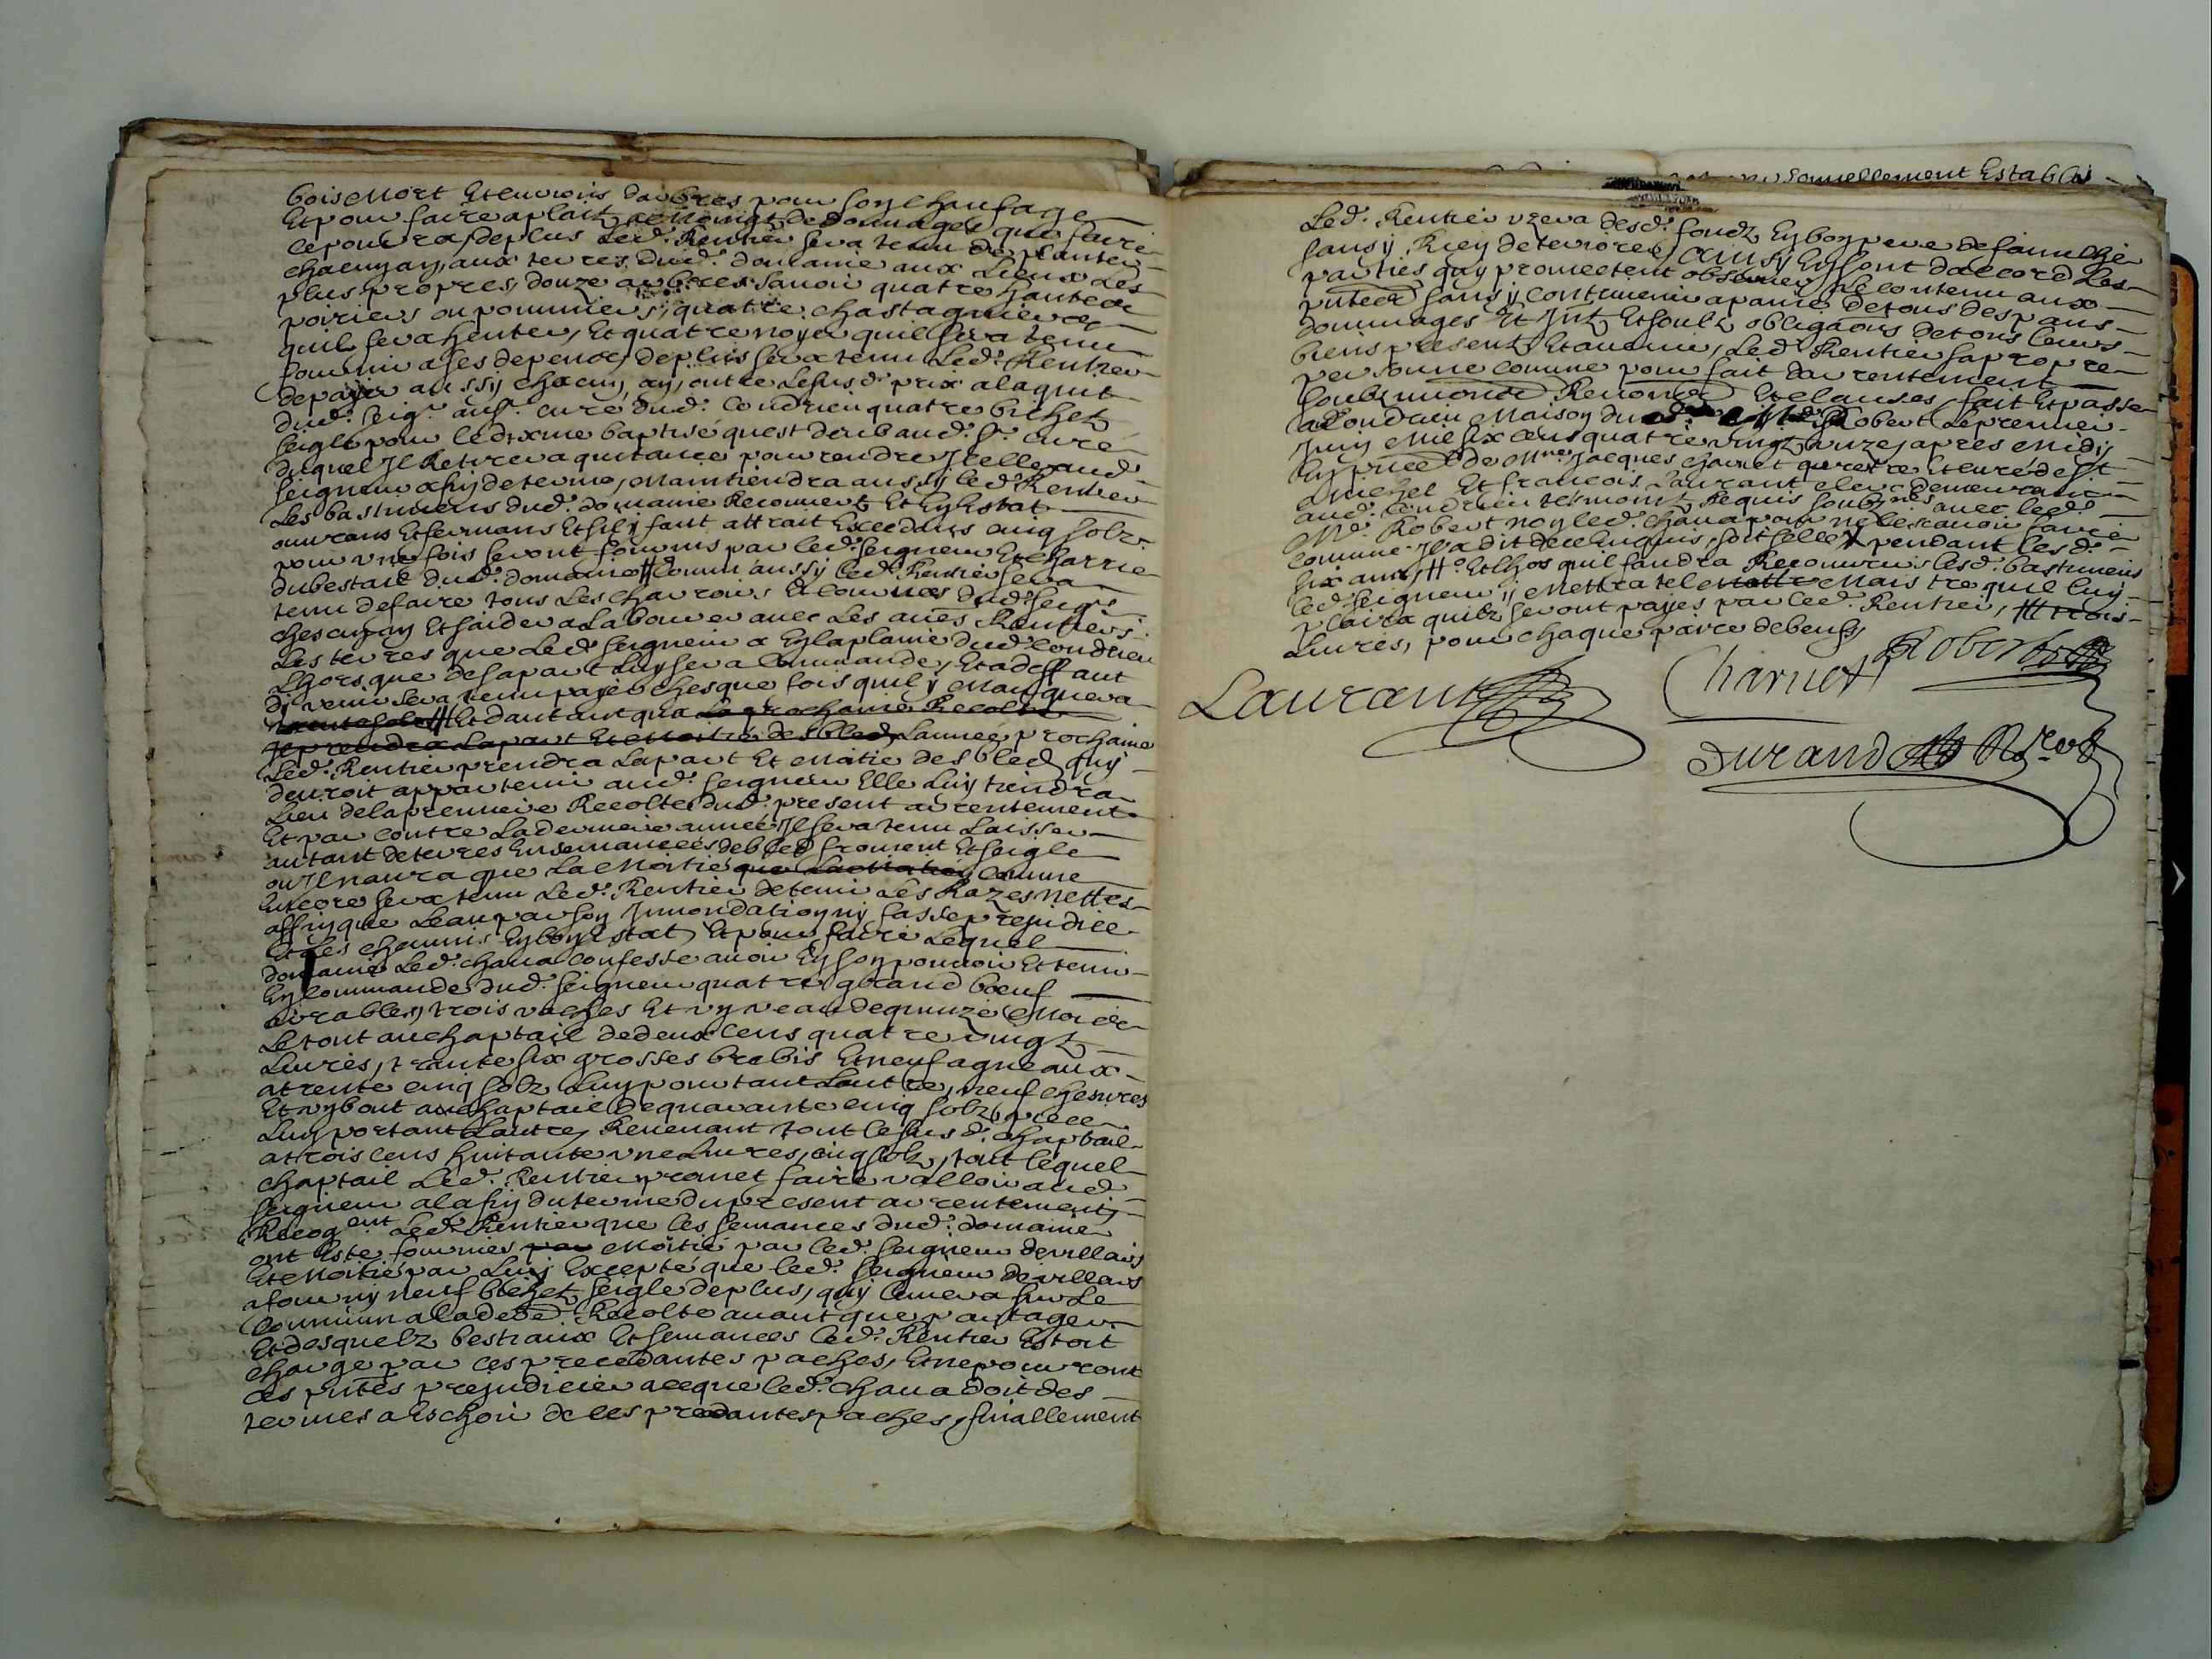 bois mort Et enuirons darbres pour son chaufage
Et pour faire aplaitz au moingtz de dommages que faire
ce pourra, de plus Led. Rentier sera tenu de planter
chacun an, aux terres dud. domaine aux Lieux Les
plus propres, douze arbres sauoir quatre
poiriers ou pommiers, quatre chastagniers
quil sera henter, Et quatre noyer quil sera tenu
fournir a ses depends, de plus sera tenu Led. Rentier
de payer aussy chacun an, outre Le susd. prix alaquit
dud. seigr. au sr. curé dud. Condrieu quatre bichetz
seigle pour le dixme baptisé quest deub aud. sr. curé
duquel Il Retirera quitance pour rendre Icelle aud.
seigneur a fin de terme, Maintiendra aussy led. Rentier
Les bastimens dud. domaine Recouuertz Et En Estat
ouurans Et fermans Et sil y faut attrait Excedans cinq solz
pour vne fois seront fournis par led. seigneur Et charrie
du bestail dud. domaine # Comm' aussy led. Rentier sera
tenu de faire tous Les charrois Et couruées dud. seigr.
chescun an Et saider a Labourer auec Les aues Rentiers
Les terres que Led. seigneur a En la plaine dud. Condrieu
Lhors que de sa part Luy sera Commandé, Et a deffaut
dy venir sera tenu payer chesque fois quil y Manquera
trente solz # Et dautant qua La prochaine Recolte
Il prendra La part Et Moitié des bleds Lannée prochaine
Led. Rentier prendra La part Et Moitié des bleds quy
deuroit appartenir aud. seigneur Elle Luy tiendra
Lieu de la premiere Recolte dud. present arrentement
Et par contre La derniere année Il sera tenu Laisser
autant de terres Ensemancées de bled froment Et seigle
ou Il naura que La Moitié Comme
Encore sera tenu Led. Rentier de tenir Les Razes nettes
affin que Leau par son Innondation ny fasse prejudice
Et Les chemins En bon Estat, Et pour faire Lequel
domaine Led. chaua confesse auoir En son pouuoir Et tenir
En Commande dud. seigneur quatre grand boeuf
airables, trois vaches Et vn veau de quinze Mois
Le tout au chaptail de deux Cens quatre vingtz
Liures, trante six grosses brebis Et neuf agneaux
a trente cinq solz Lun portant Lautre, neuf cheures
Et vn bout au chaptail de quarante cinq solz piece
Lun portant Lautre, Reuenant tout le susd. chaptail
a trois cens huitante vne Liures, cinq solz, tout lequel
chaptail Led. Rentier promet faire valloir aud.
seigneur a la fin du terme du present arrentement
Recogent Led. Rentier que les semances dud. domaine
ont Este fournies par Moitié par led. seigneur de villars
Et Moitié par Luy Excepté que led. seigneur de villars
a fourny neuf bichet seigle de plus, quy leuera sur Le
Commun a lad. Recolte auant que partager
Et desquelz bestiaux Et semances led. Rentier Estoit
chargé par ces precedantes paches, Et ne pourront
ces pntes prejudicier a ce que led. chaua doit des
termes a Eschoir de ces predantes paches, finallement
sonnellement Establis
Led. Rentier vzera desd. fondz En bon pere de famillie
sans y Rien deteriorer, Ainsy En sont daccord Les
parties quy promettent obseruer Le contenu aux
pntes sans y Contreuenir a paine de tous despans
dommages Et Intz Et soubz obligaons de tous leurs
biens presentz Et auenir, Led. Rentier sa propre
personne comme pour fait darrentement
soubzmons Renons Et clauses, fait Et passé
a Condrieu Maison du Robert Le premier
Juin Mil six cens quatre vingtz unze, apres Midy
En pnce de Mre Jacques charuet prestre Et curé de st
Michel Et françois Laurant clerc demeurant
aud. Condrieu tesmoins Requis soubznés auec led.
Mr. Robert non led. chaua pour ne le scauoir faire
comme Il a dit de ce Enquis, soit sellé X pendant lesd.
six ans, # Et lhors quil faudra Recouurir lesd. bastimens
led. seigneur y Mettra tel Mattre Maistre quil luy
plaira quilz seront payes par led. Rentier, ### trois
Liures, pour chaque paire de beufs
Laurant Charuet Robert
Durand No.re Ro.l